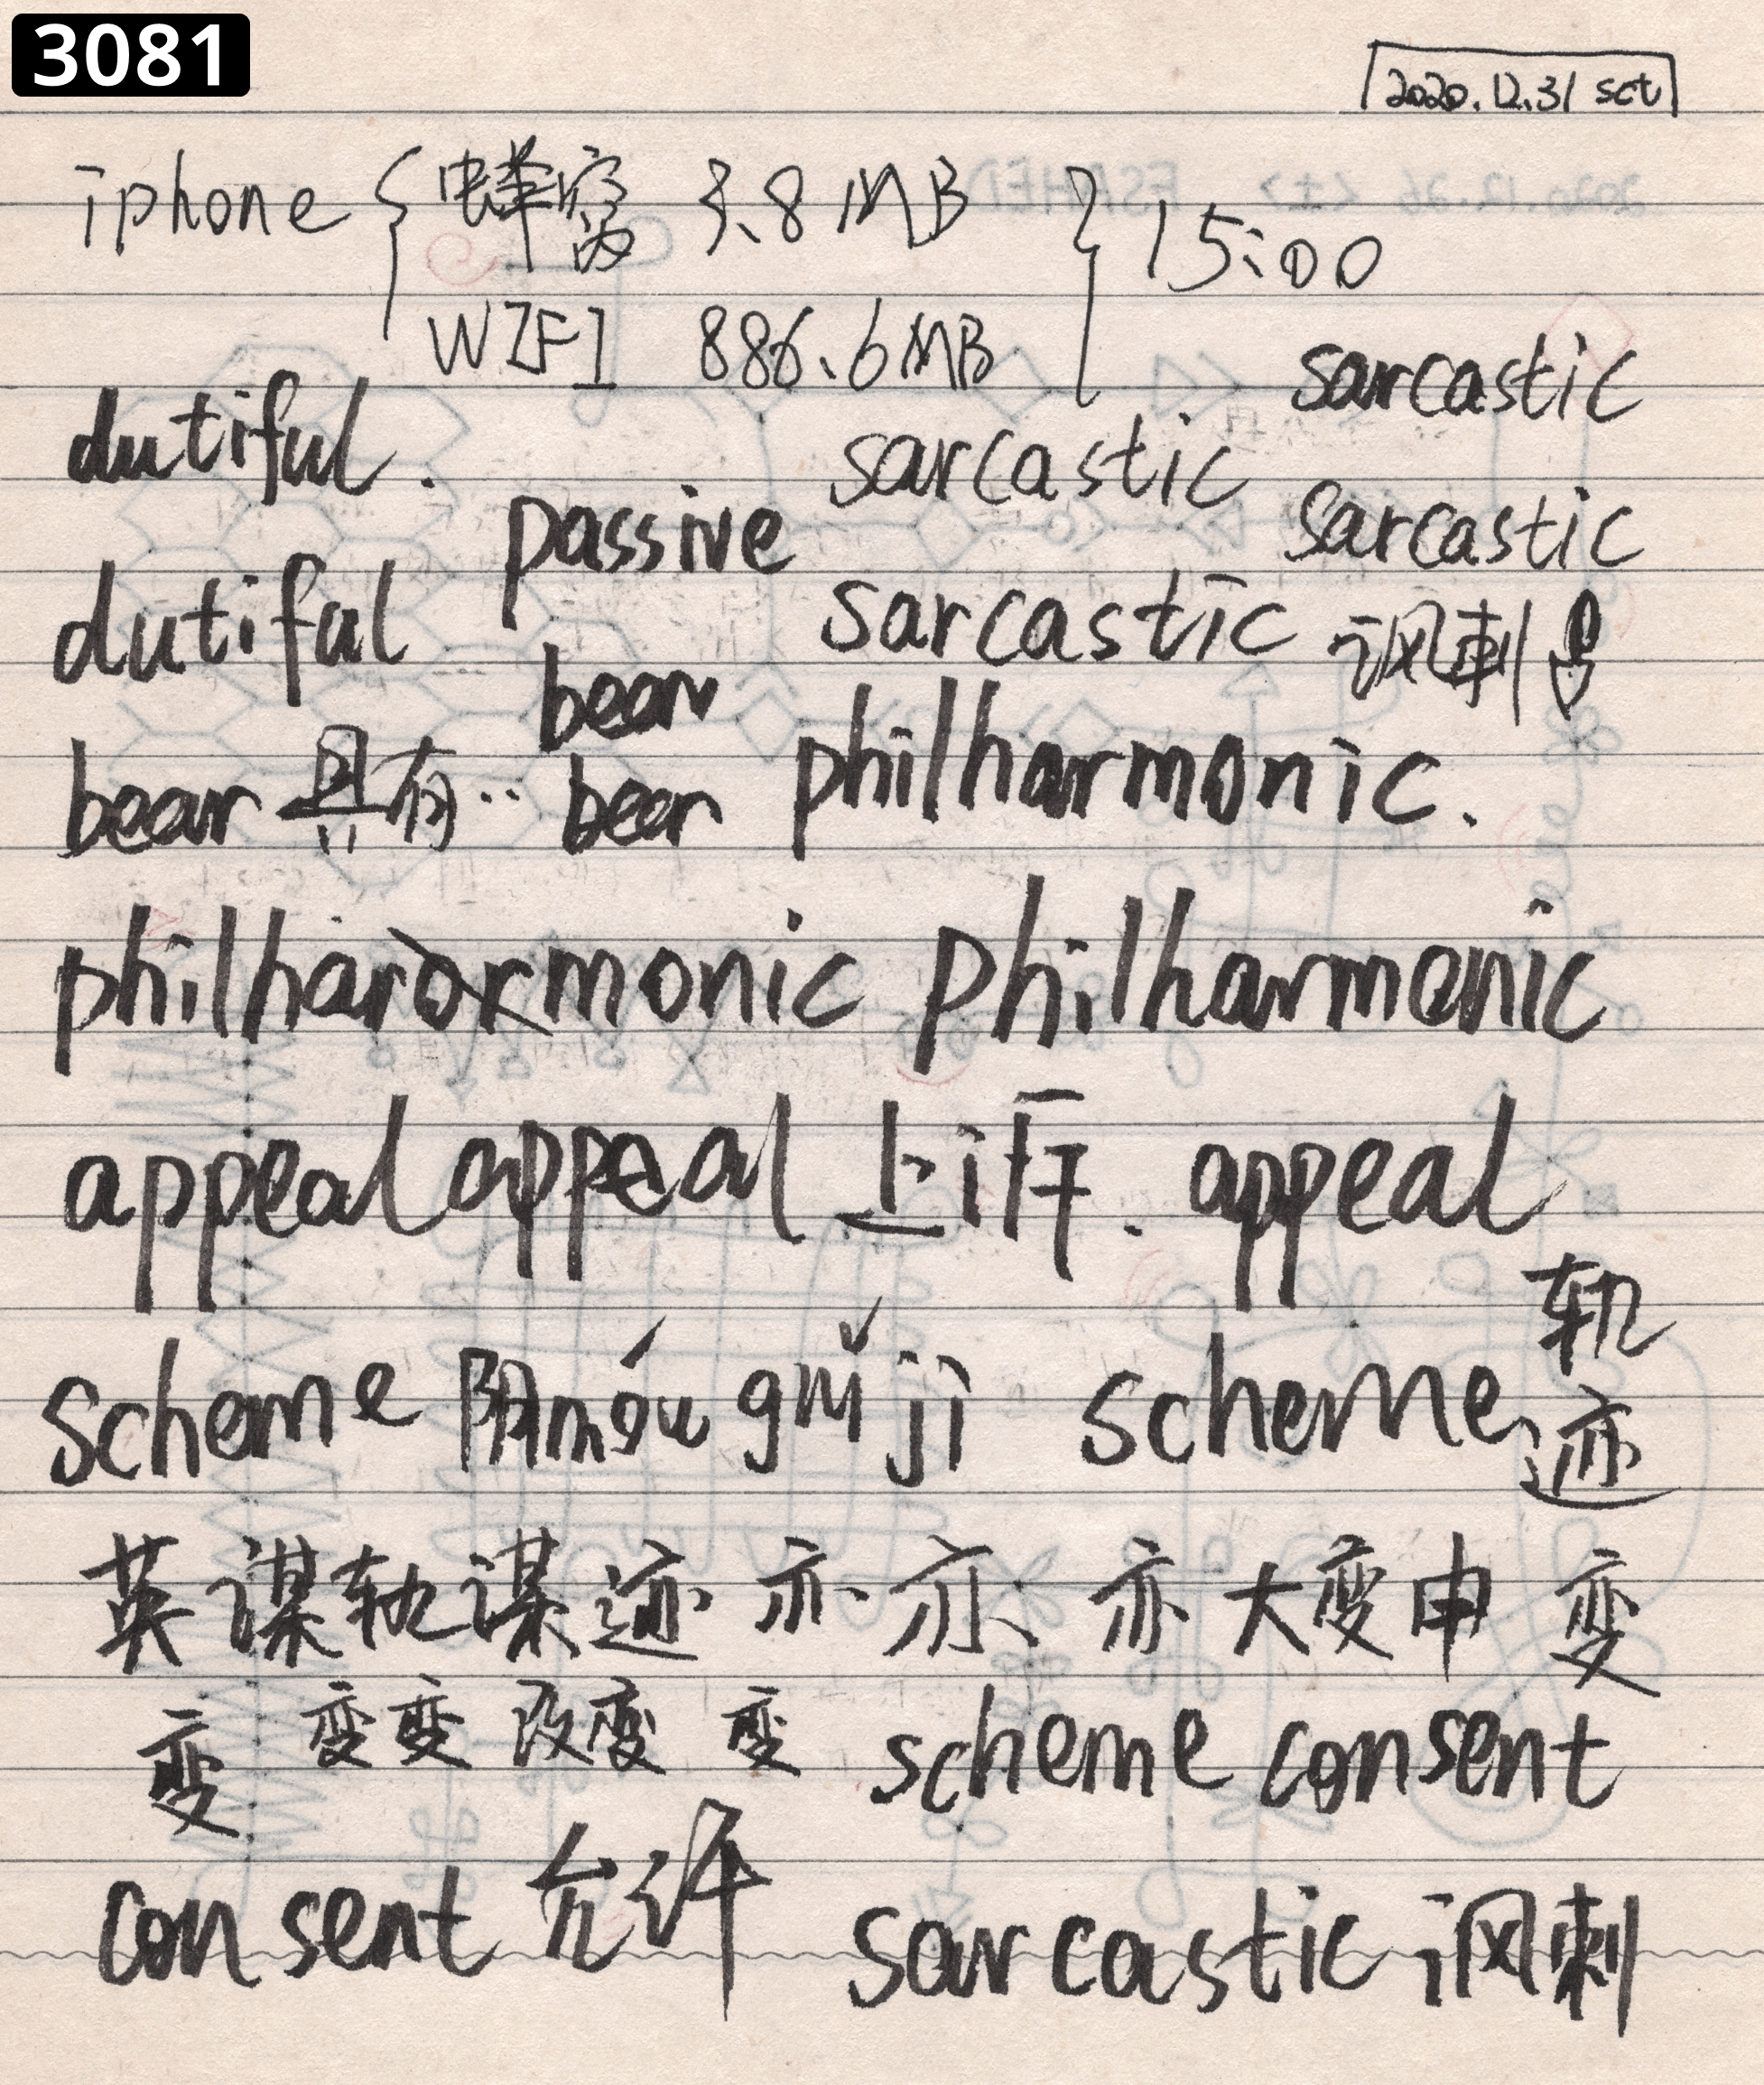 3081
2020.12.31 sct
iphone { 蜂窝 3.8 MB } 15:00
WIFI 886.6MB
sarcastic
dutiful. sarcastic
passive sarcastic
dutiful sarcastic 讽刺
bear
bear 具有.. bear philharmonic.
philharmonic philharmonic
appeal appeal 上诉. appeal
scheme 阴móu guǐ jì scheme 轨迹
英谋轨谋迹 亦 亦 亦 大变申 变
变 变变 改变 变 scheme consent
consent 允许 sarcastic 讽刺